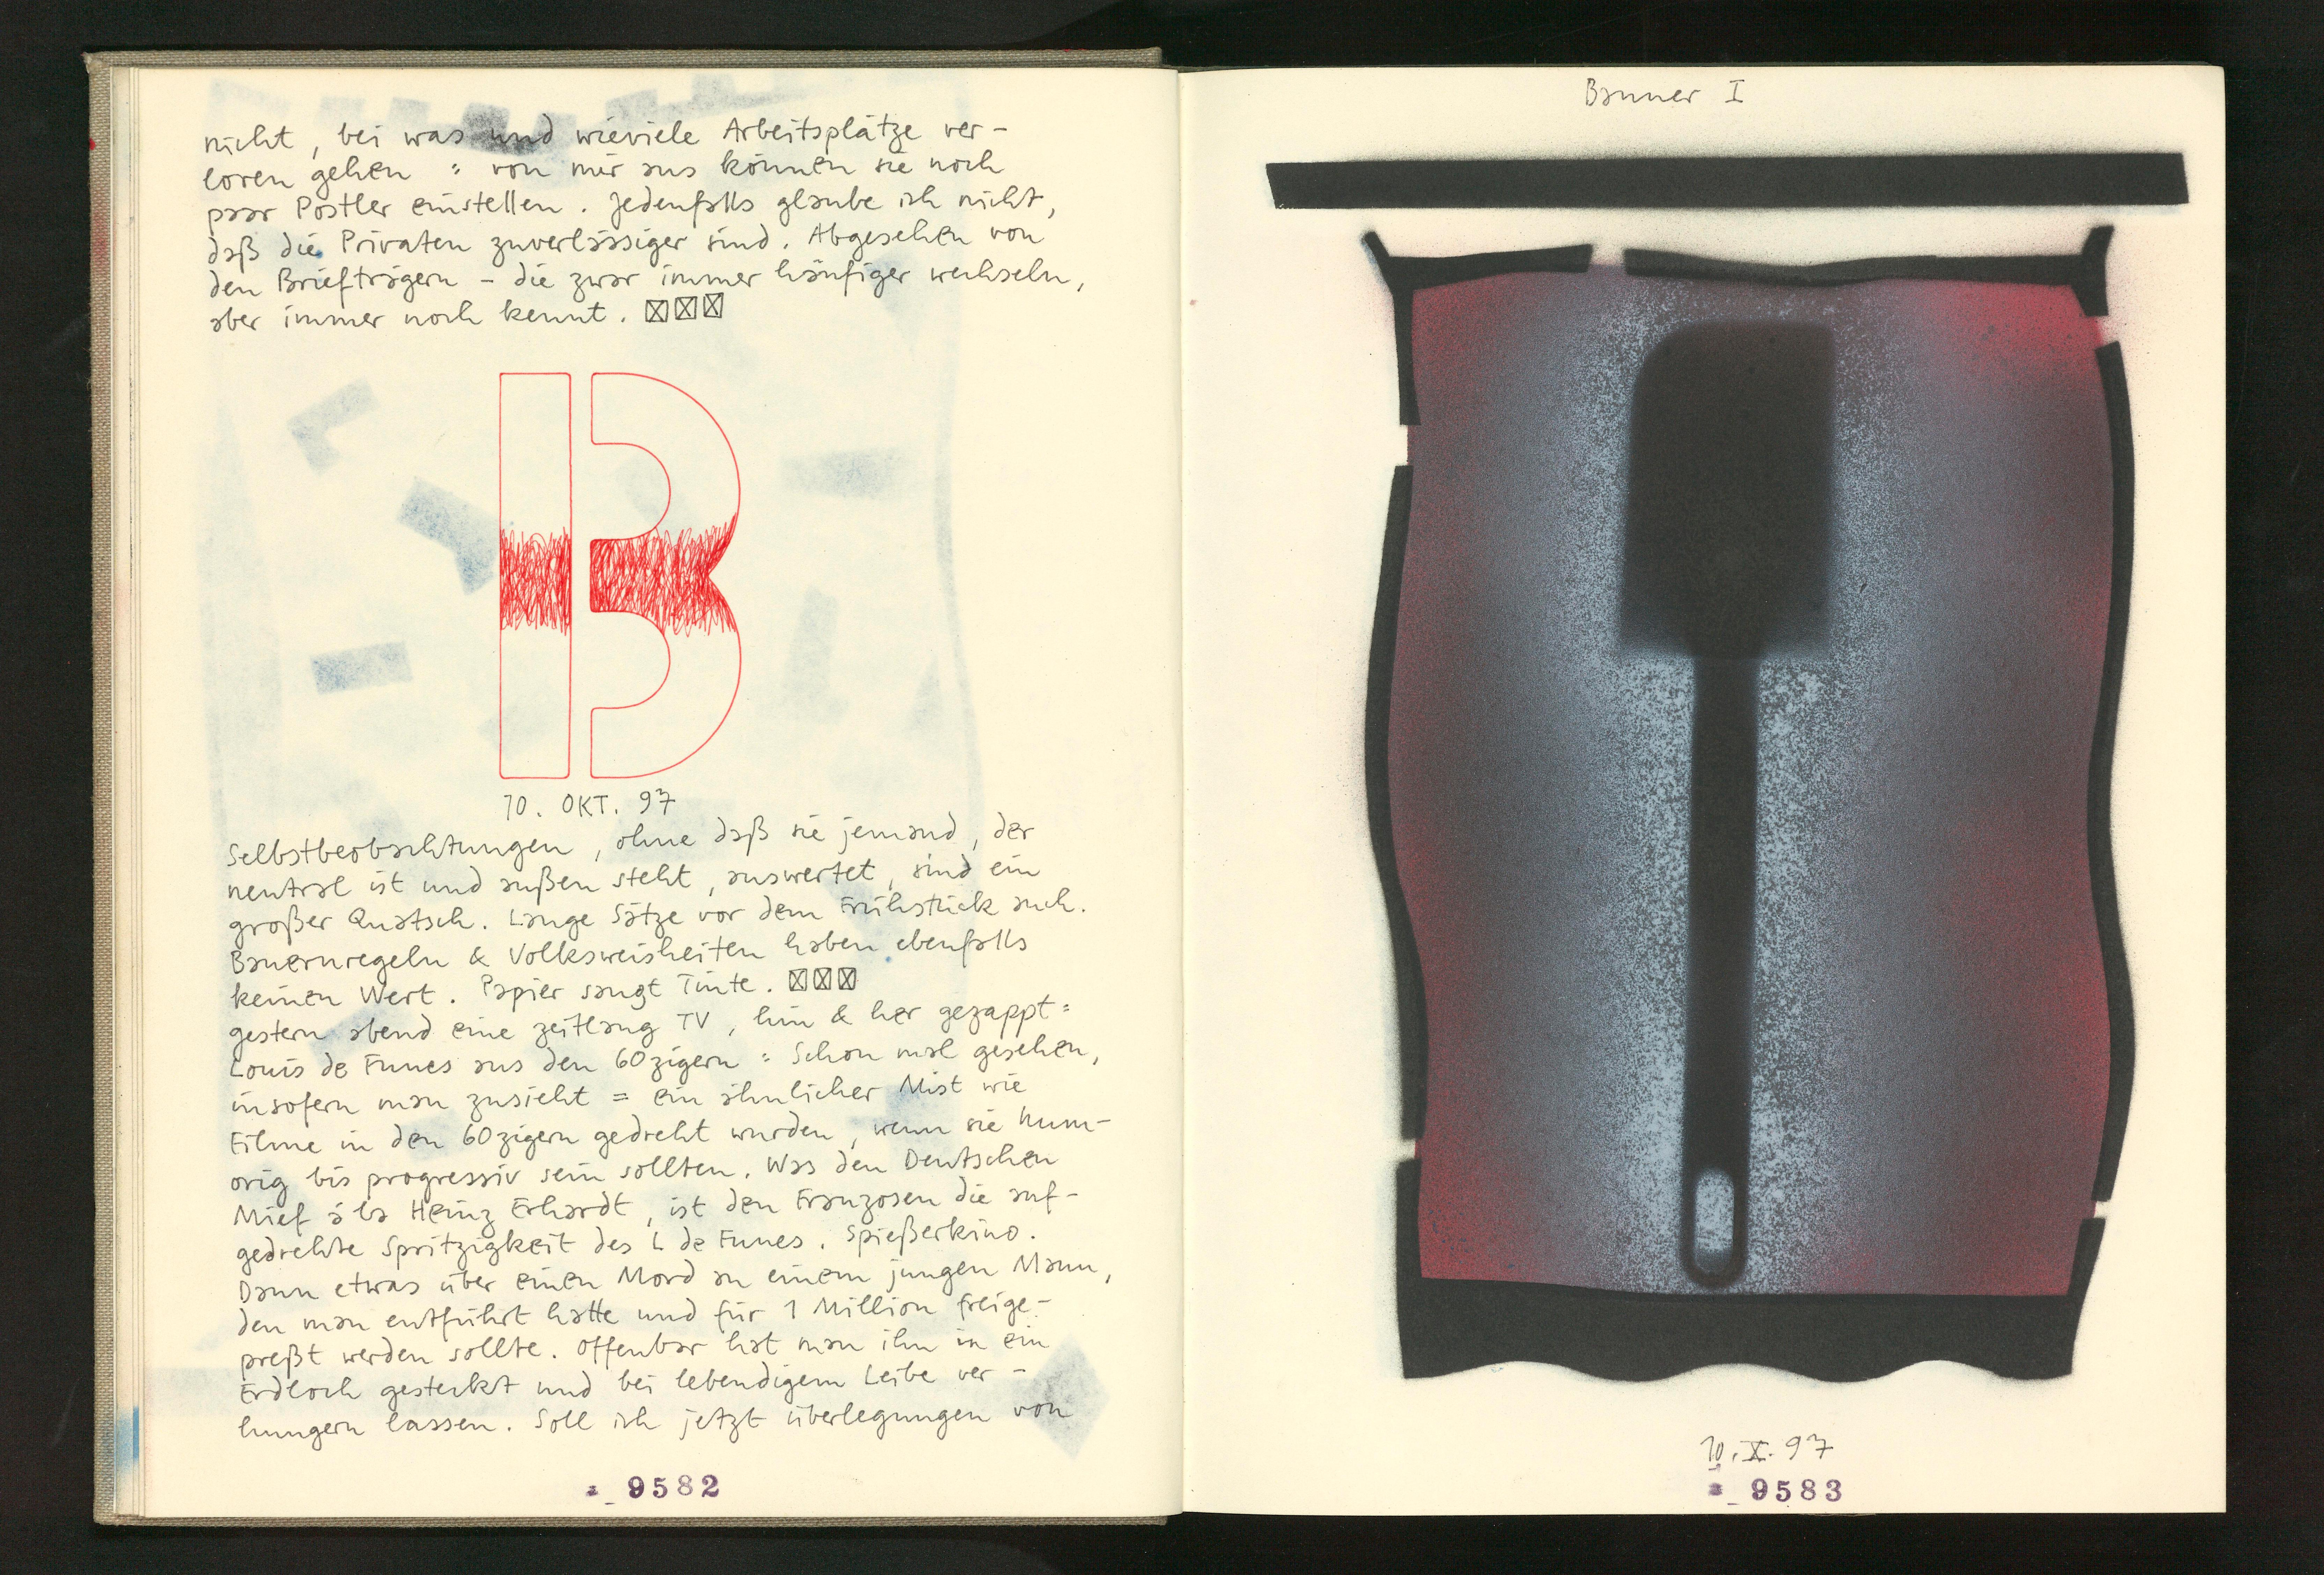 nicht, bei was und wieviele Arbeitsplätze ver-
loren gehen : von mir aus können sie noch
paar Postler einstellen. Jedenfalls glaube ich nicht,
daß die Privaten zuverlässiger sind. Abgesehen von
den Briefträgern – die zwar immer häufiger wechseln,
aber immer noch kennt.
B
10. OKT. 97
Selbstbeobachtungen, ohne daß sie jemand, der
neutral ist und außen steht, auswertet, sind ein
großer Quatsch. Lange Sätze vor dem Frühstück auch.
Bauernregeln & Volksweisheiten haben ebenfalls
keinen Wert. Papier saugt Tinte.
gestern abend eine zeitlang TV, hin & her gezappt:
Louis de Funes aus den 60zigern : Schon mal gesehen,
insofern man zusieht = ein ähnlicher Mist wie
Filme in den 60zigern gedreht wurden, wenn sie hum-
orig bis progressiv sein sollten. Was den Deutschen
Mief à la Heinz Erhardt, ist den Franzosen die auf-
gedrehte Spritzigkeit des L de Funes. Spießerkino.
Dann etwas über einen Mord an einem jungen Mann,
den man entführt hatte und für 1 Million freige-
preßt werden sollte. Offenbar hat man ihn in ein
Erdloch gesteckt und bei lebendigem Leibe ver-
hungern lassen. Soll ich jetzt überlegungen von
9582
Banner I
10. X. 97
9583